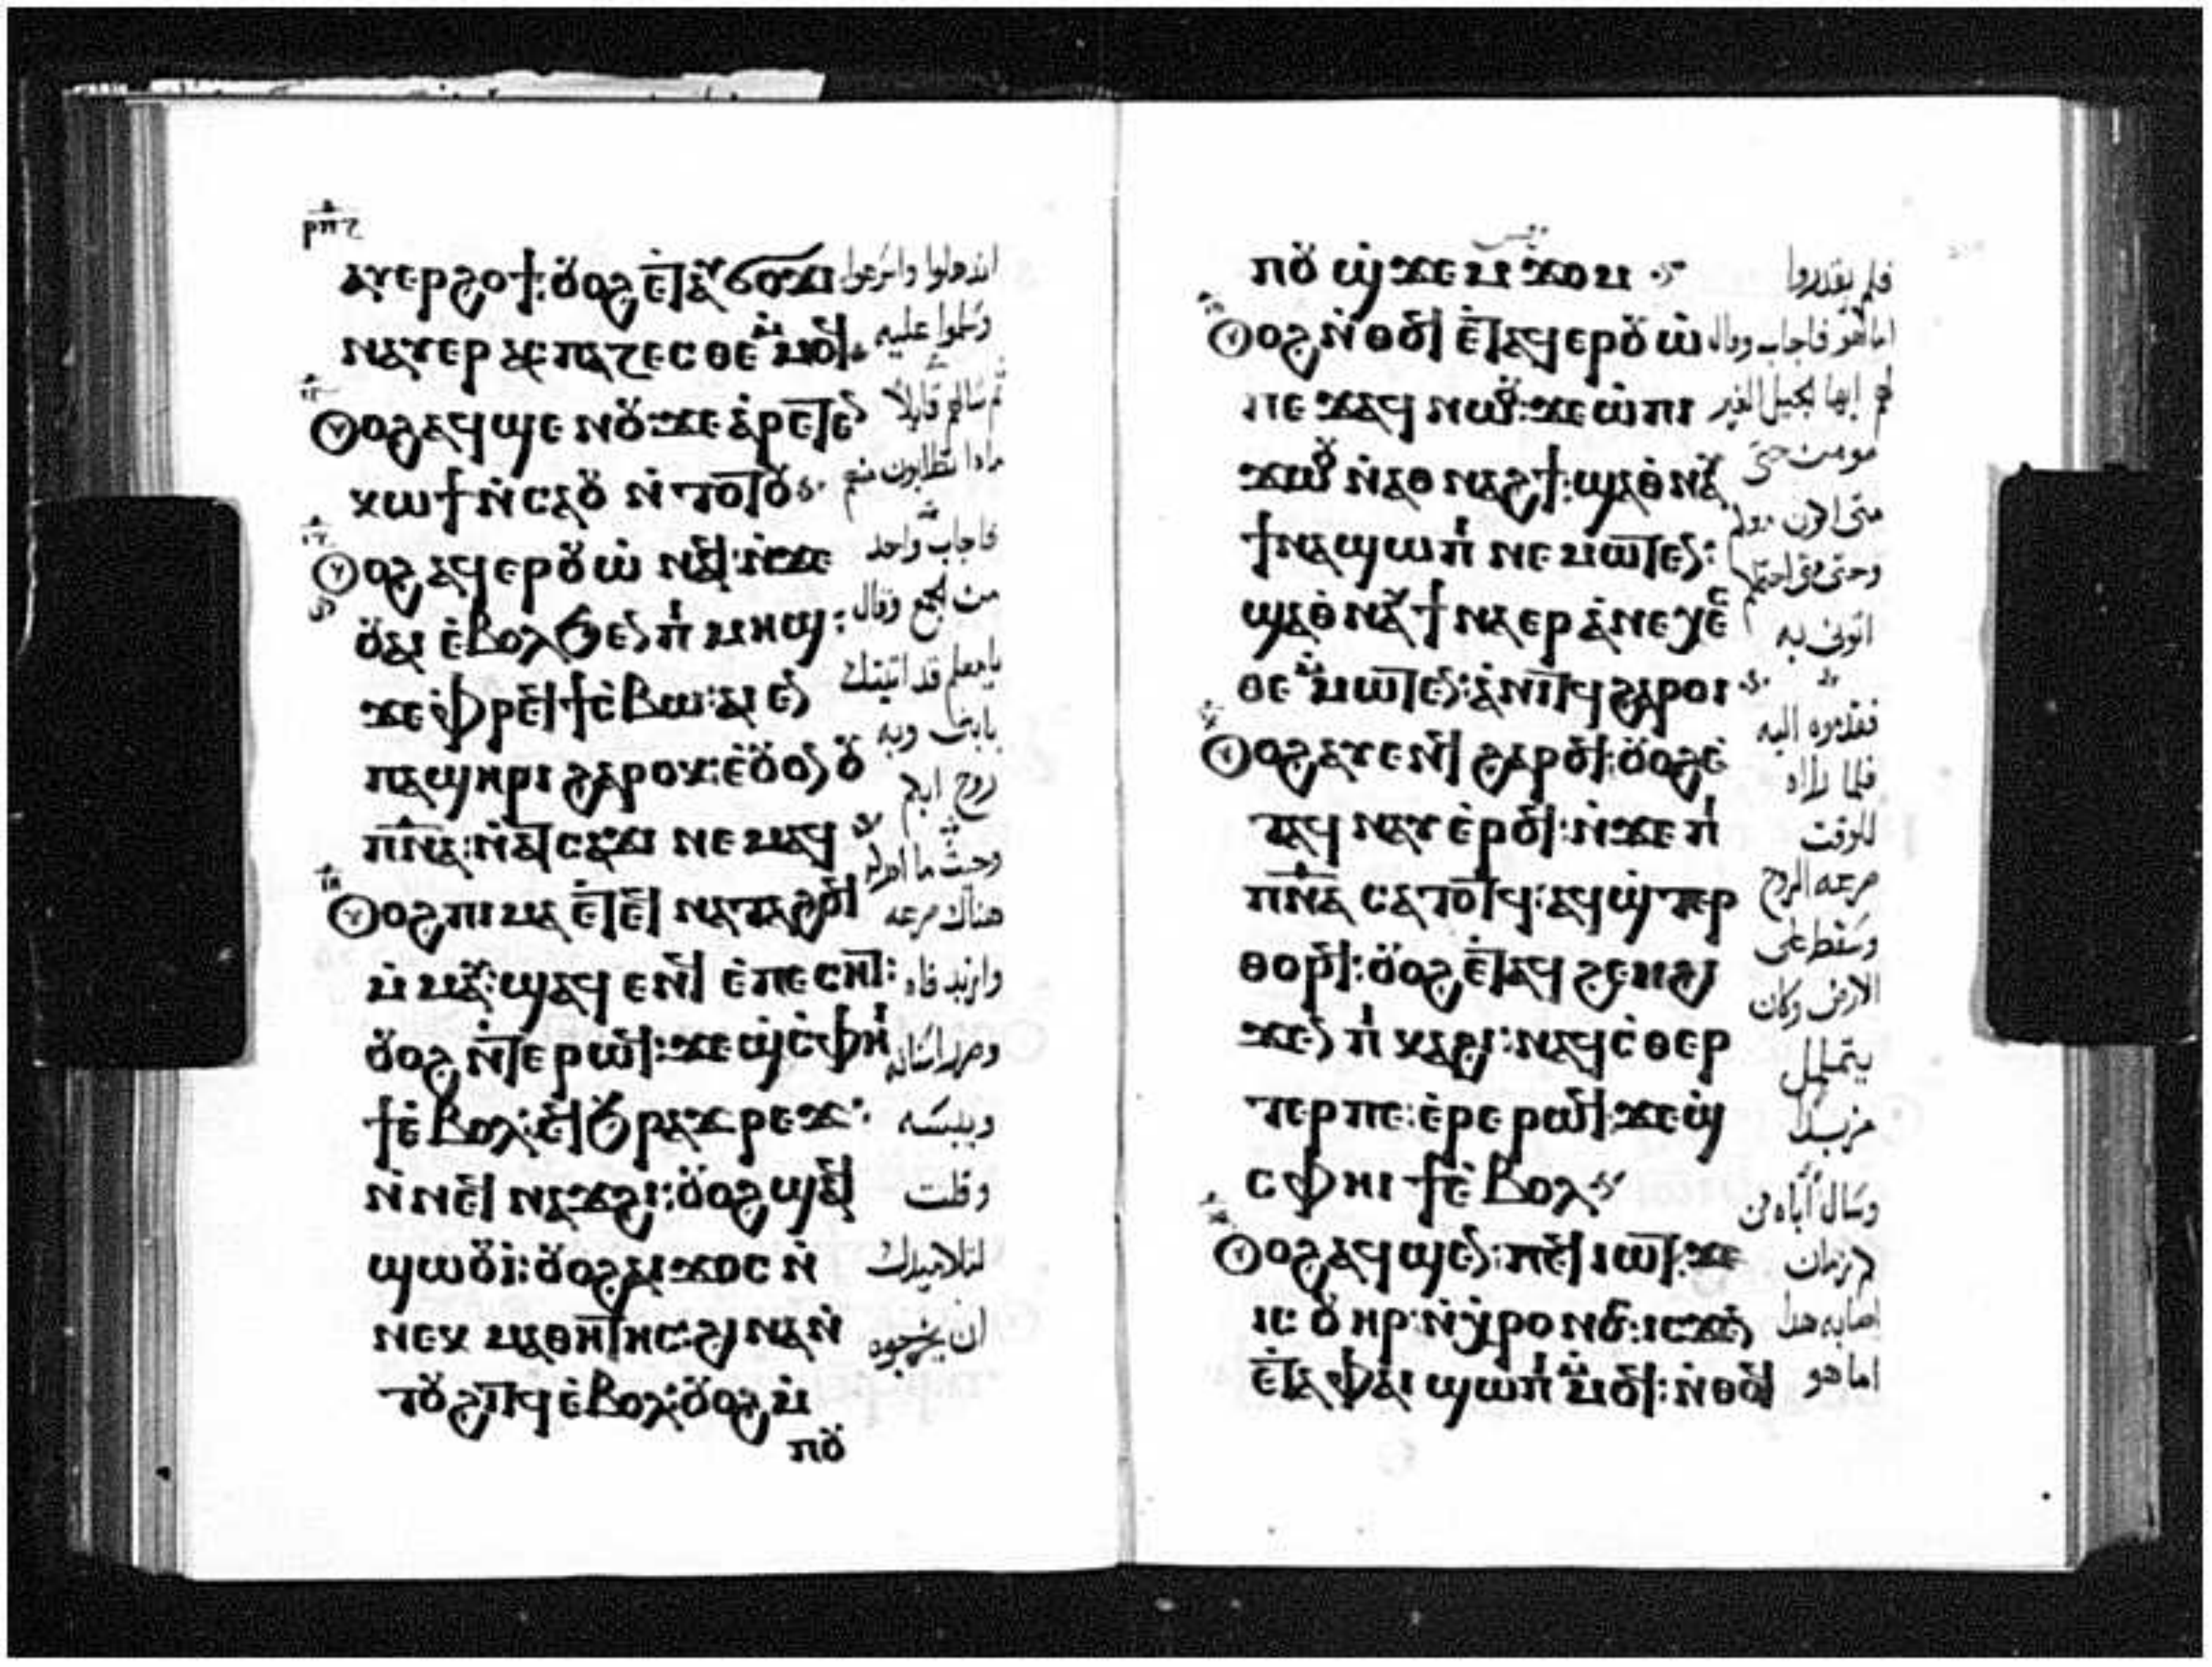 ⲣⲡⲋ
ⲁⲩⲉⲣϩⲟϯ:ⲟⲩⲟϩ ⲉⲧⲁⲩϭⲟϫⲓ
ⲛⲁⲩⲉⲣⲁⲥⲡⲁⲍⲉⲥⲑⲉ ⲙⲙⲟϥ
ⲟⲩⲟϩ ⲁϥϣⲉⲛⲟⲩ:ϫⲉ ⲁⲣⲉⲧⲉⲛ
ⲕⲱϯ ⲛⲥⲁⲟⲩ ⲛⲧⲟⲧⲟⲩ
ⲟⲩⲟϩ ⲁϥⲉⲣⲟⲩⲱ ⲛⲁϥ:ⲛϫⲉ
ⲟⲩⲁⲓ ⲉⲃⲟⲗϧⲉⲛ ⲡⲓⲙⲏϣ:
ϫⲉ ⲫⲣⲉϥϯⲥⲃⲱ:ⲁⲓⲉⲛ
ⲡⲁϣⲏⲣⲓ ϩⲁⲣⲟⲕ:ⲉⲟⲩⲟⲛ ⲟⲩ
ⲡⲛⲁ:ⲛⲁⲧⲥⲁϫⲓ ⲛⲉⲙⲁϥ
ⲟⲩⲟϩ ⲡⲓⲙⲁ ⲉⲧⲉϥⲛⲁⲧⲁϩⲟϥ
ⲙⲙⲁⲩ:ϣⲁϥⲉⲛϥ ⲉⲡⲉⲥⲏⲧ:
ⲟⲩⲟϩ ⲛⲧⲉⲣⲱϥ:ϫⲉϣⲥⲫⲏⲓ
ϯⲉⲃⲟⲗ:ⲛⲧⲉϥϧⲣⲁϫⲣⲉϫ
ⲛⲛⲉϥⲛⲁϫϩⲓ:ⲟⲩⲟϩ ϣⲁϥ
ϣⲱⲟⲩⲓ:ⲟⲩⲟϩ ⲁⲓϫⲟⲥ ⲛ
ⲛⲉⲕⲙⲁⲑⲏⲧⲏⲥ:ϩⲓⲛⲁ ⲛ
ⲧⲟⲩϩⲓⲧϥ ⲉⲃⲟⲗ:ⲟⲩⲟϩ ⲙ
ⲡⲟⲩ
وسلموا عليه
ثم سالهم قايلا
ماذا تطلبون منهم
فاجاب واحد
من الجمع وقال
يا معلم قد اتيتك
بابني وبه
روح ابكم
وازبد فاه
وصرر اسنانه
ويبسه
وقلت
لتلاميذك
ان يخرجوه
ⲡⲟⲩϣϫⲉⲙϫⲟⲙ
ⲟⲩⲟϩ ⲛⲑⲟϥ ⲉⲧⲁϥⲉⲣⲟⲩⲱ
ⲡⲉϫⲁϥ ⲛⲱⲟⲩ:ϫⲉ ⲱ ⲡⲓ
ϫⲱⲟⲩ ⲛⲁⲑⲛⲁϩϯ:ϣⲁⲑⲛⲁⲩ
ϯⲛⲁϣⲱⲡⲓ ⲛⲉⲙⲱⲧⲉⲛ:
ϣⲁⲑⲛⲁⲩ ϯⲛⲁⲉⲣⲁⲛⲉⲭⲉⲥ
ⲑⲉ ⲙⲙⲱⲧⲉⲛ:ⲁⲛⲓⲧϥ ϩⲁⲣⲟⲓ
ⲟⲩⲟϩ ⲁⲩⲉⲛϥ ϩⲁⲣⲟϥ:ⲟⲩⲟϩ ⲉ
ⲧⲁϥⲛⲁⲩ ⲉⲣⲟϥ:ⲛϫⲉ ⲡⲓ
ⲡⲛⲁ ⲥⲁⲧⲟⲧϥ:ⲁϥϣⲧⲉⲣ
ⲑⲟⲣϥ:ⲟⲩⲟϩ ⲉⲧⲁϥϩⲉⲓ ϩⲓ
ϫⲉⲛ ⲡⲓⲕⲁϩⲓ:ⲛⲁϥⲥⲑⲉⲣ
ⲧⲉⲣ ⲡⲉ:ⲉⲣⲉ ⲣⲱϥ:ϫⲉϣ
ⲥⲫⲏⲓ ϯⲉⲃⲟⲗ
ⲟⲩⲟϩ ⲁϥϣⲉⲛ:ⲡⲉϥⲓⲱⲧ:ϫⲉ
ⲓⲥ ⲟⲩⲏⲣ:ⲛⲭⲣⲟⲛⲟⲥ:ⲓⲥϫⲉⲛ
ⲉⲧⲁ ⲫⲁⲓ ϣⲱⲡⲓ ⲙⲙⲟϥ:ⲛⲑⲟϥ
فلم يقدروا
اما هو فاجاب وقال
لهم ايها الجيل الغير
مومن حتى
ايتوني به
فقدموه اليه
فلما راه
للوقت
صرعه الروح
وسقط على
الارض وكان
يتململ
مزبدا
وسال اباه من
كم زمان
اصابه هذا
اما هو